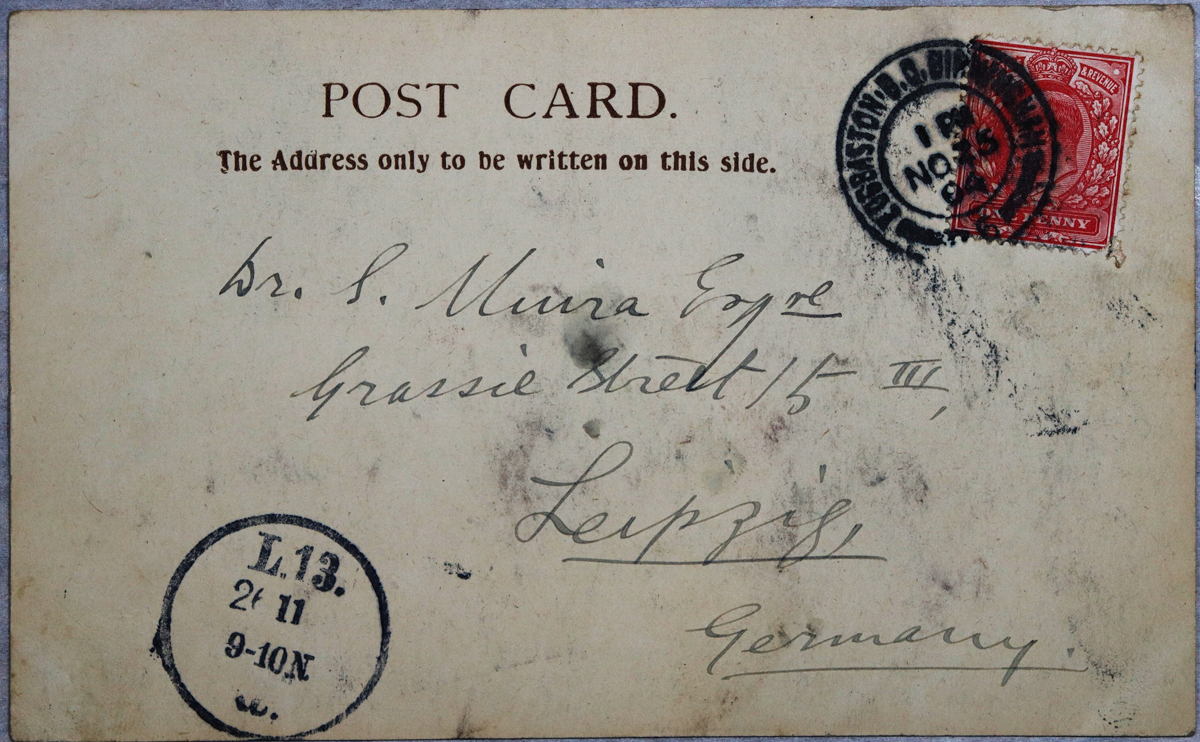 POST CARD.
The Address only to be written on this side.
EDGBASTON.B.O.BIRMINGHAM
1 PM
NO 25
04
& REVENUE
ONE PENNY
Dr. S. Miura Esqre
Grassie Street 15 III,
Leipzig,
Germany.
L.13.
26 11
9-10N